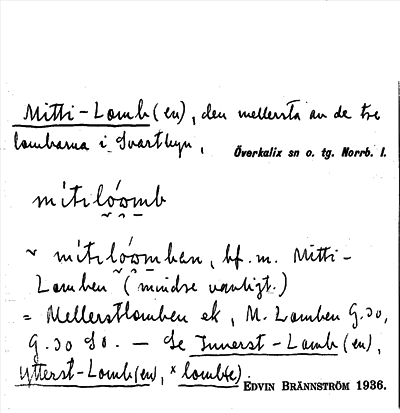 Mitti-Lomb(en), den mellersta av de tre
lombarna i Svartbyn,
Överkalix sn o. tg. Norrb. l.
mi̇́tılóomb
~ mı́tılóomban, bf. m. Mitti-
Lomben (mindre vanligt.)
= Mellerstlomben ek, M. Lomben G.30,
G.30 S0. – Se Innerst-Lomb(en),
Ytterst-Lomb(en), × lomb(e).
EDVIN BRÄNNSTRÖM 1936.